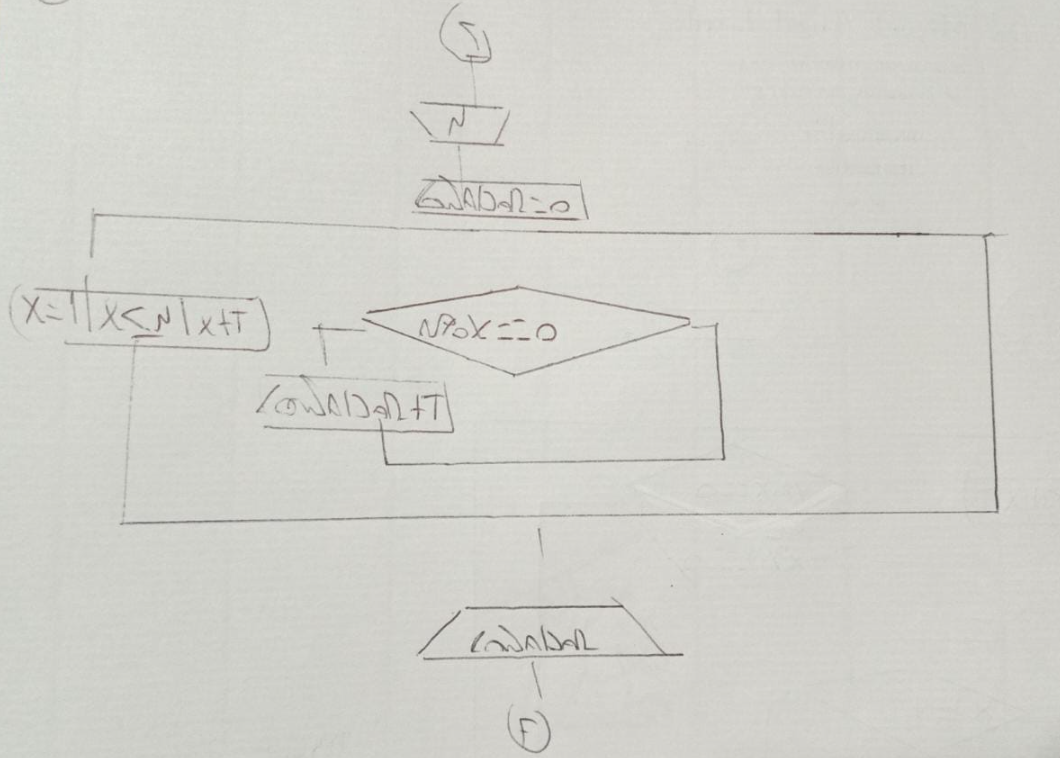 I
N
CONTADOR=0
X=1|X<=N|X++
N%X==0
CONTADOR++
CONTADOR
F